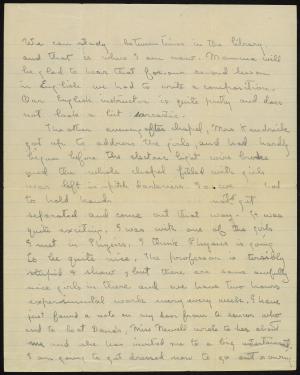 We can study between times in the library
and that is where I am now. Mamma will
be glad to hear that for our second lesson
in English we had to write a composition.
Our English instructor is quite pretty and does
not look a bit sarcastic.
The other evening after chapel, Miss Kendrick
got up to address the girls, and had hardly
begun before the electric light wire broke
and the whole chapel filled with girls
was left in pitch darkness. So we had
to hold hands not get
separated and come out that way. It was
quite exciting. I was with one of the girls
I met in Physics. I think Physics is going
to be quite nice. The professor is terribly
stupid & slow, but there are some awfully
nice girls in there and we have two hours
experimental work every week. I have
just found a note on my door from a senior who
Miss Newell wrote to her about
me and she has invited me to a big
I am going to get dressed now to go out